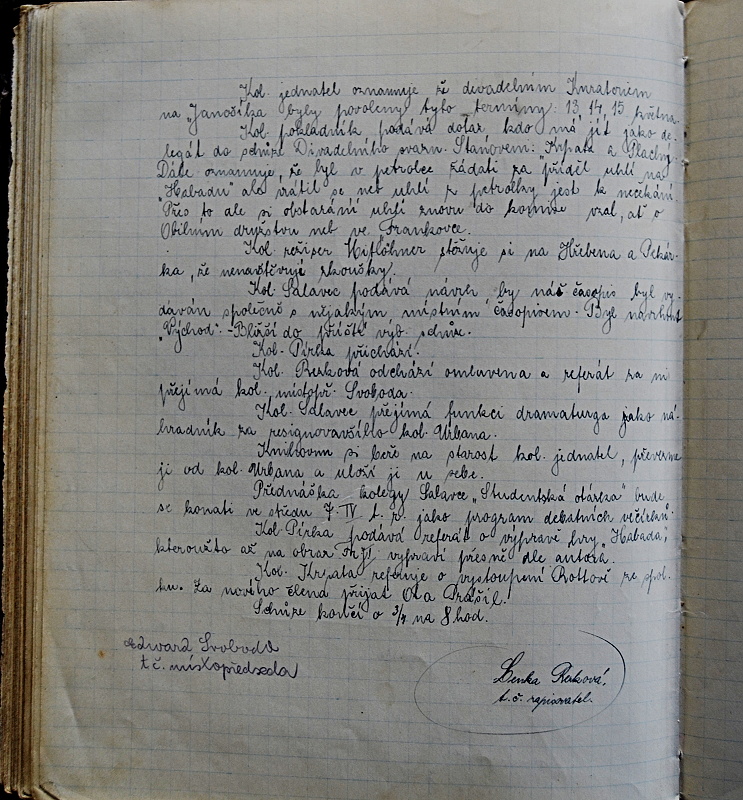 Kol. jednatel oznamuje že divadelním Kuratoriem
na „Janošíka byly povoleny tyto termíny: 13, 14, 15 května.
Kol. pokladník podává dotaz, kdo má jít jako de-
legát do schůze Divadelního svazu. Stanoveni: Krpata a Plachý.
Dále oznamuje, že byl v petrolce žádati za příděl uhlí na
„Habadu" ale vrátil se neb uhlí z petrolky jest k nečekání.
Přes to ale si obstarání uhlí znovu do komise vzal, ať o
Obilním družstvu neb ve Frankovce.
Kol. režiser Hiflöhner stěžuje si na Hřebena a Pekár-
ka, že nenavštěvují zkoušky.
Kol. Salavec podává návrh by náš časopis byl vy-
dáván společně s nějakým místním časopisem. Byl navrhnut
„Východ". Bližší do příští výb. schůze.
Kol. Pírka přichází.
Kol. Berková odchází omluvena a referát za ni
přejímá kol. místopř. Svoboda.
Kol. Salavec přejímá funkci dramaturga jako ná-
hradník za resignovavšího kol. Urbana.
Knihovnu si beře na starost kol. jednatel, převezme
ji od kol. Urbana a uloží ji u sebe.
Přednáška kolegy Salavce „Studentská otázka" bude
se konati ve středu 7. IV t. r. jako program debatních večírků.
Kol. Pírka podává referát o výpravě hry „Habada",
kteroužto až na obraz vypraví přesně dle autora.
Kol. Krpata referuje o vystoupení Rottové ze spol-
ku. Za nového člena přijat Ota Prášil.
Schůze končí o 3/4 na 8 hod.
Edward Svoboda
t č. místopředseda
Lenka Berková,
t. č. zapisovatel.